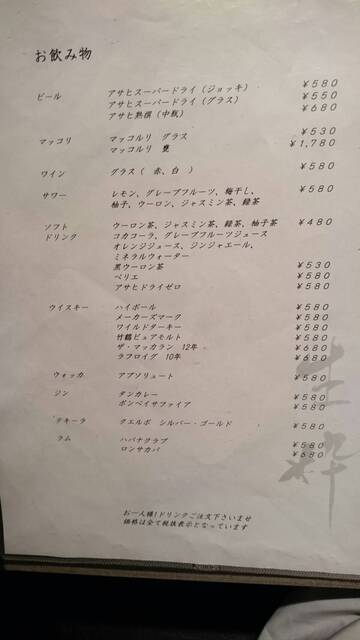 お飲み物
ビール アサヒスーパードライ（ジョッキ） ¥580
アサヒスーパードライ（グラス） ¥550
アサヒ熟撰（中瓶） ¥680
マッコリ マッコルリ グラス ¥530
マッコルリ 甕 ¥1,780
ワイン グラス（ 赤、白 ） ¥580
サワー レモン、グレープフルーツ、梅干し、 ¥580
柚子、ウーロン、ジャスミン茶、緑茶
ソフト ウーロン茶、ジャスミン茶、緑茶、柚子茶 ¥480
ドリンク コカコーラ、グレープフルーツジュース
オレンジジュース、ジンジャエール、
ミネラルウォーター
黒ウーロン茶 ¥530
ペリエ ¥580
アサヒドライゼロ ¥580
ウイスキー ハイボール ¥580
メーカーズマーク ¥580
ワイルドターキー ¥580
竹鶴ピュアモルト ¥580
ザ・マッカラン 12年 ¥680
ラフロイグ 10年 ¥680
ウォッカ アブソリュート ¥580
ジン タンカレー ¥580
ボンベイサファイア ¥580
テキーラ クエルボ シルバー・ゴールド ¥580
ラム ハバナクラブ ¥580
ロンサカパ ¥680
お一人様1ドリンクご注文下さいませ
価格は全て税抜表示となっています